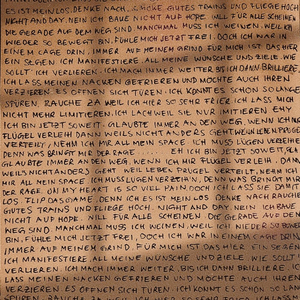 ES IST MEINLOS, DENKE NACH, SMOKE, GUTES TRAINS UND FLIEGE HOCH
NIGHT AND DAY. NEIN ICH BAUE NICHT AUF HOPE WILL FÜR ALLE SCHEINEN
DIE GERADE AUF DEM WEG SIND MANCHMAL MUSS ICH WEINEN, WEIL ICH
WIEDER SO BEWEGT BIN. FÜHLE MICH JETZT FREI, DOCH ICH WAR IN
EINEM CAGE DRIN. IMMER AUF MEINEM GRIND. FÜR MICH IST DAS HIER
EIN SEGEN. ICH MANIFESTIERE, ALL MEINE WÜNSCHE UND ZIELE WIE
SOLLT ICH VERLIEREN, ICH MACH IMMER WEITER, BIS ICH DANN BRILLIERE.
ICH LASS MEINEN NACKEN GEFRIEREN UND MÖCHTE AUCH IHREN
VERZIEREN ES ÖFFNEN SICH TÜREN. ICH KONNT ES SCHON SO LANGE
SPÜREN, RAUCHE ZA WEIL ICH HIER SO SEHR FRIER ICH LASS MICH
NICHT MEHR LIMITIEREN. ICH LACH WEIL SIE NUR IMITIEREN
ICH BIN JETZT SOWEIT, GLAUBTE IMMER AN DEN WEG, WENN ICH MEINE
FLÜGEL VERLEIH DANN WEILS NICHT ANDERS GEHT WEIL LEBEN PRÜGEL
VERTEILT, NEHM ICH MIR ALL MEIN SPACE ICH MUSS LÜGEN VERZEIHEN
DENN WAS BRINGT MIR DER RAGE ICH BIN JETZT SOWEIT,
GLAUBTE IMMER AN DEN WEG, WENN ICH MIR FLÜGEL VERLEIH, DANN
WEILS NICHT ANDERS GEHT WEIL LEBEN PRÜGEL VERTEILT, NEHM ICH
MIR ALL MEIN SPACE ICH MUSS LÜGEN VERZEIHN, DENN WAS BRINGT MIR
DER RAGE. IN MY HEART IS SO VIEL PAIN DOCH ICH LASS SIE DAMIT
LOS. FLIP DAS GAME, DENN ICH ES IST MEIN LOS DENKE NACH, SMOKE
GUTES TRAINS UND FLIEGE HOCH. NIGHT AND DAY NEIN ICH BAUE
NICHT AUF HOPE WILL FÜR ALLE SCHEINEN, DIE GERADE AUF DEM
WEG SIND, MANCHMAL MUSS ICH WEINEN, WEIL ICH WIEDER SO BEWEGT
BIN. FÜHLE MICH JETZT FREI, DOCH ICH WAR IN EINEM CAGE DRIN,
IMMER AUF MEINEM GRIND FÜR MICH IST DAS HIER EIN SEGEN
ICH MANIFESTIERE ALL MEINE WÜNSCHE UND ZIELE WIE SOLL ICH
VERLIEREN, ICH MACH IMMER WEITER, BIS ICH DANN BRILLIERE. ICH
LASS MEINEN NACKEN GEFRIEREN UND MÖCHTE AUCH IHREN
VERZIEREN ES ÖFFNEN SICH TÜREN ICH KONNT ES SCHON SO LANGE
SPÜREN RAUCHE ZA